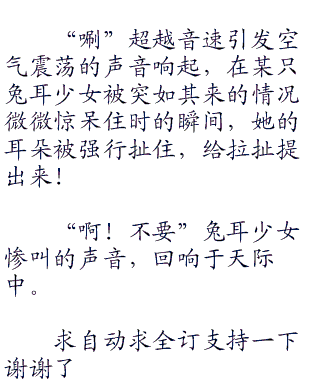 “唰”超越音速引发空
气震荡的声音响起，在某只
兔耳少女被突如其来的情况
微微惊呆住时的瞬间，她的
耳朵被强行扯住，给拉扯提
出来！
“啊！不要”兔耳少女
惨叫的声音，回响于天际
中。
求自动求全订支持一下
谢谢了